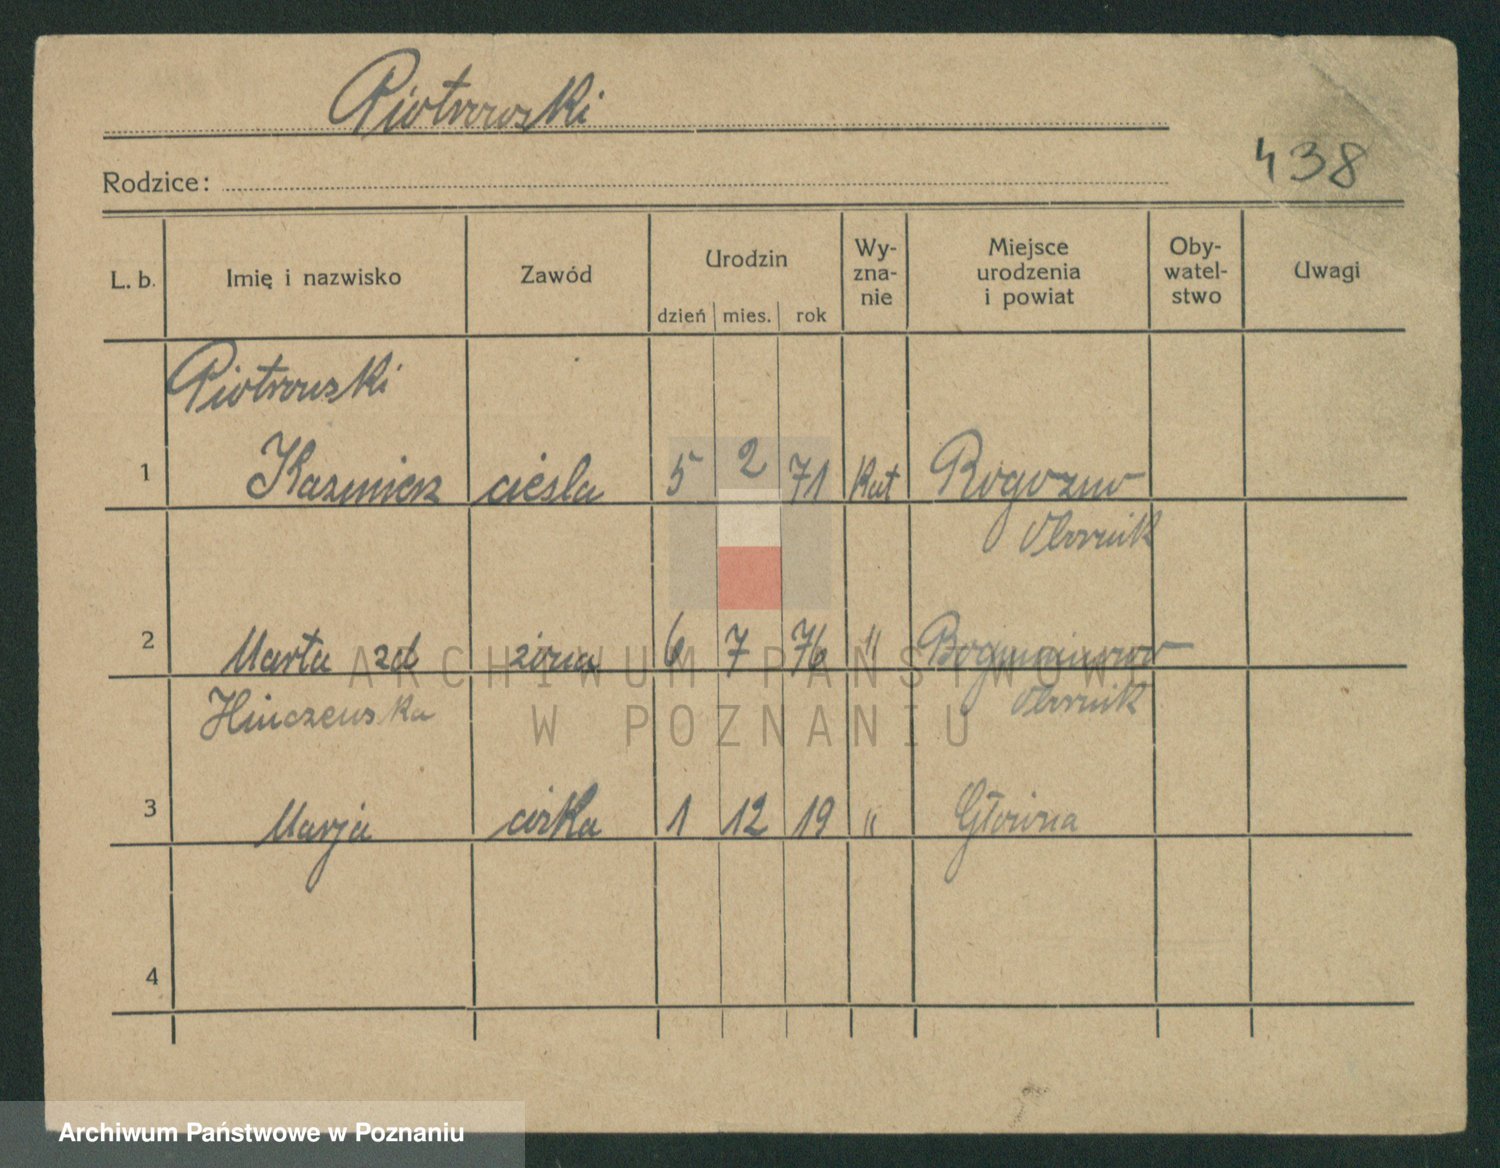 Piotrowski
438
Rodzice:
L. b. Imię i nazwisko Zawód Urodzin dzień mies. rok Wy-zna-nie Miejsce urodzenia i powiat Oby-watel-stwo Uwagi
Piotrowski
1 Kazmierz cieśla 5 2 71 Kat Rogozno
Obornik
2 Marta zd żona 6 7 76 " Boguniewo
Obornik
3 Marja córka 1 12 19 " Główna
4
ARCHIWUM PAŃSTWOWE
W POZNANIU
Archiwum Państwowe w Poznaniu